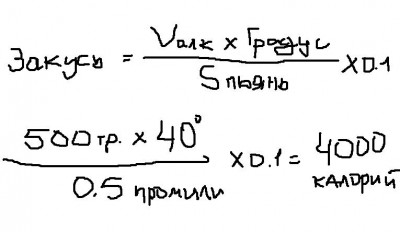 Закусь = Vалк x Градус / Sпьянь x0.1
500 гр. x 40° / 0.5 промили x0.1 = 4000 калорий